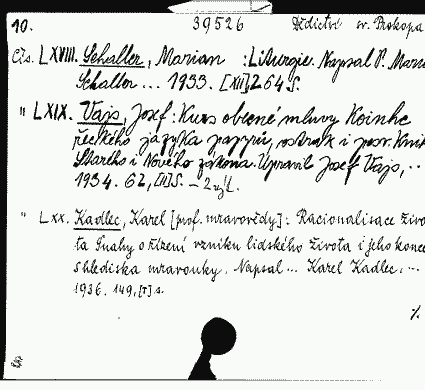 10. 39526 Dědictví sv. Prokopa
Čís. LXVIII. Schaller, Marian : Liturgie. Napsal P. Mari
Schaller ... 1933. [XII] 264 S.
" LXIX. Vajs, Josef: Kurs obecné mluvy Koinhe
řeckého jazyka papyrů, ostrak i posv. Knih
Starého i Nového zákona. Upravil Josef Vajs, ..
1934. 62, [II] S. – 2 výt.
" LXX. Kadlec, Karel [prof. mravovědy]: Racionalisace živo-
ta Snahy o řízení vzniku lidského života i jeho konce
s hlediska mravouky. Napsal ... Karel Kadlec, ...
1936. 149, [I] s.
%